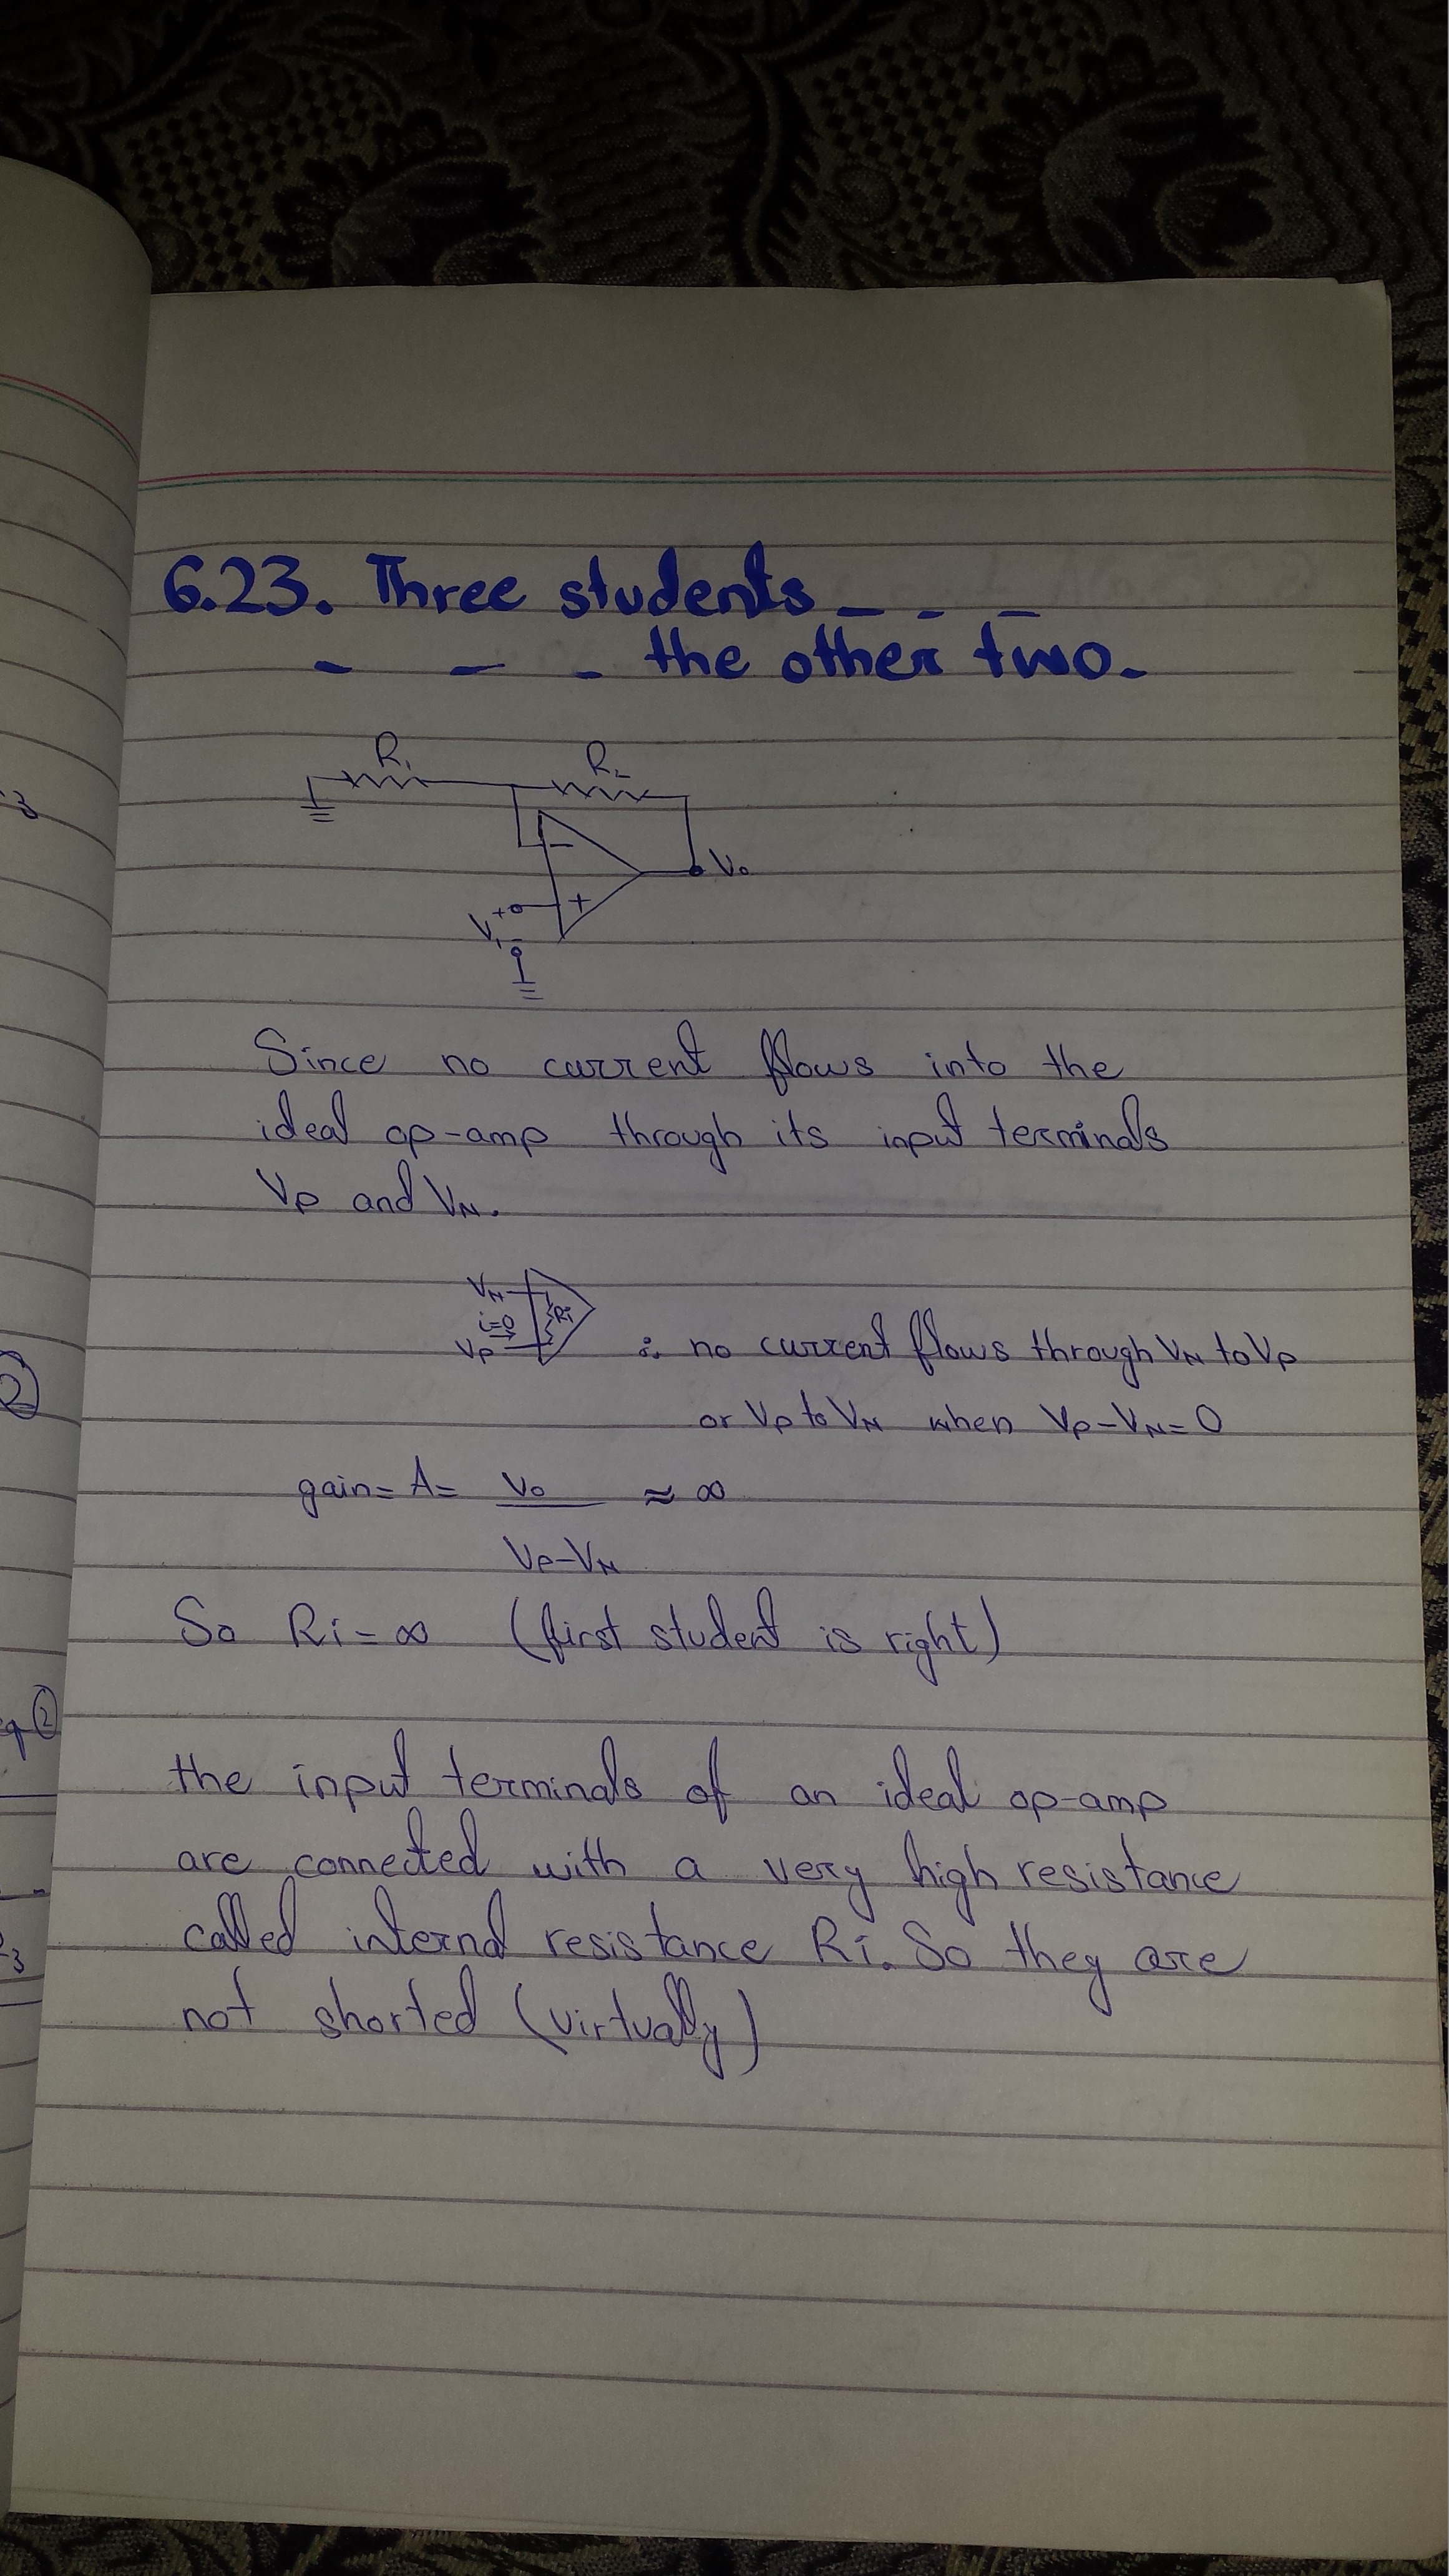 6.23. Three students _ _ _
_ _ _ the other two.
R₁ R₂
-
V₀
+
+
V₁
-
Since no current flows into the
ideal op-amp through its input terminals
Vp and VN.
VN
i=0 Ri
Vp
∴ no current flows through VN to Vp
or Vp to VN when Vp-VN=0
gain= A= V₀ ≈ ∞
Vp-VN
So Ri= ∞ (first student is right)
the input terminals of an ideal op-amp
are connected with a very high resistance
called internal resistance Ri. So they are
not shorted (virtually)
3
2
eq 2
3